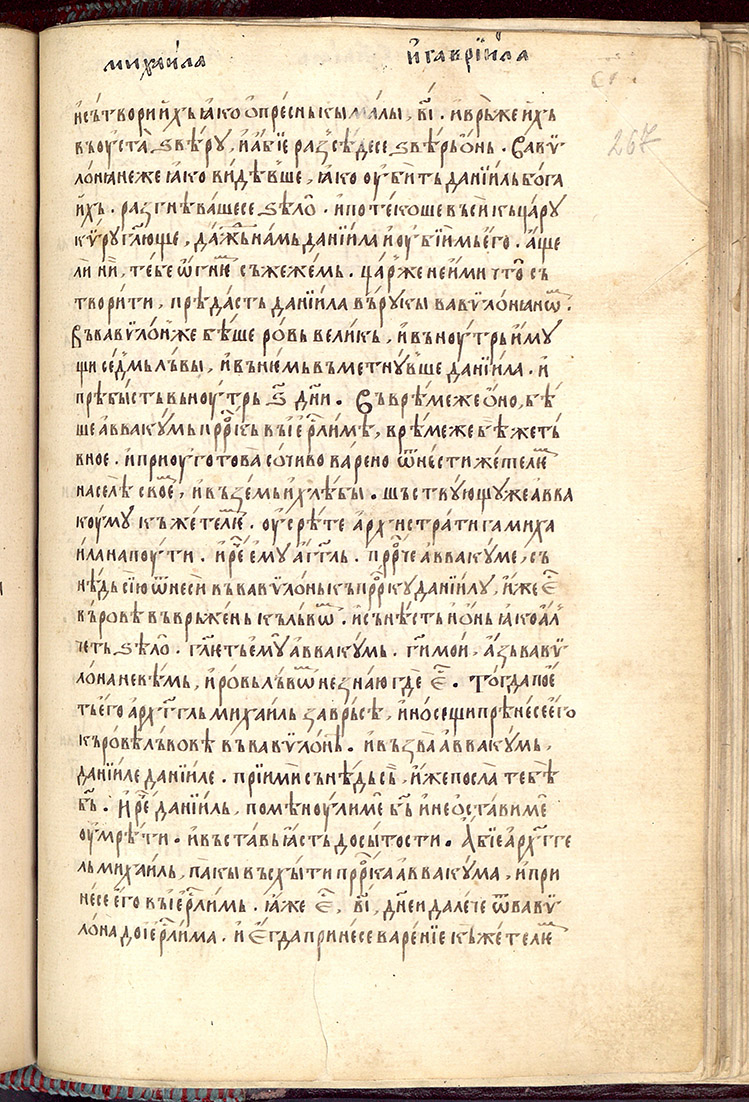 михаи́ла и҆гаврїи́ла
267
и҆сътвори̑и҆хь ꙗ҆ко ѻ҆прѣснькы ма́лы, в҃і . и҆врь́же и҆хь
въ оу҆ста̀ ѕвѣ́ру, и҆а҆́бїе разсѣ́десе ѕвѣ́рьѻ҆нь . Ѳавѵ̈
ло́нꙗнеже ꙗ҆́ко ви́дѣвше, ꙗ҆́ко оу҆би́ть данїи́ль бо́га
и҆́хь . разгнѣ́вашесе ѕѣло̀ . и҆поте́коше въсѝ къца́ру
кѵ̈́ру гл҃юще, да́ждь на́мь данїи́ла и҆оу҆бїи́мь є҆го . а҆́ще
ли ни̑, те́бе ѡ҆гнѥ́мь съжеже́мь . ца́рже неи҆ми что̀ съ
твори́ти, прѣда́сть данїи́ла въ ру́кы вавѵ̈лонꙗнѡ́мь .
Въвавѵ̈ло́нже бѣ́ше ро́вь вели́кь, и҆въноу́трь и҆му
щи се́дмьлъвы, и҆въньѥ́мь въметну́вше данїи́ла . и҆
прѣбы́сть вьноу́трь ѕ҃ дн҃и . Съврѣ́меже ѻ҆но, бѣ́
ше авваку́мь прⷪ҇ркь въі҆є҆рⷭ҇ли́мѣ, врѣ́меже бѣ̀ же́ть
вное . и҆приоу҆гото́ва со́чиво варено ѿне́сти же́телѥмь
насе́лѣ свое́, и҆възе́мь и҆хлѣ́бы . шъ́ствующуже авва
коу́му къже́телѥмь . оу҆срѣ́те а҆рхистрати́га миха
и́ль напоу́ти . и҆рⷱ҇е є҆му а҆́гг҃ль . прⷪ҇рче авваку́ме, съ
нѣ́дь сїю̀ ѿнесѝ въвавѵ̈ло́нь къпрⷪ҇рку данїи́лу, и҆́же є҆ⷭ҇
въро́вѣ въврь́жень къльвѡ́мь . и҆снѣ́сть и҆ѻ҆нь ꙗ҆́ко а҆́л
четь ѕѣло̀ . гл҃еть є҆мꙋ̀ авваку́мь . гⷭ҇и мой, а҆́зь вавѵ̈
ло́на не вѣ́мь, и҆ро́вь льво́мь незна́ю гдѐ є҆ⷭ҇ . То́гда поє҆
ть є҆го а҆рхгг҃ль михаи́ль за врь́сѣ, и҆но́сещи прѣне́се є҆го
къро́вѣ лъво́вѣ въвавѵ̈ло́нь . и҆възва̀ авваку́мь,
дани́иле дани́иле . прїими́ снѣ́дь сїю̀, и҆́же посла̀ тебѣ̀
бг҃ь . И҆рⷱ҇е данїи́ль, помѣ́ноу ли мѐ бг҃ь и҆неѻ҆ста́ви мѐ
оу҆мрѣ́ти . и҆въста́вь ꙗ҆́сть досы́тости . А҆́бїе а҆рхгге
ль михаи́ль, па́кы въсхы́ти прⷪ҇рка авваку́ма, и҆при
не́се є҆го въі҆є҆рⷭ҇ли́мь . ꙗ҆́же є҆ⷭ҇, в҃і, дн҃еи дале́че ѿвавѵ̈
ло́на до і҆є҆рⷭ҇ли́ма . и҆ є҆гда принесе варе́нїе къже́телѥмь